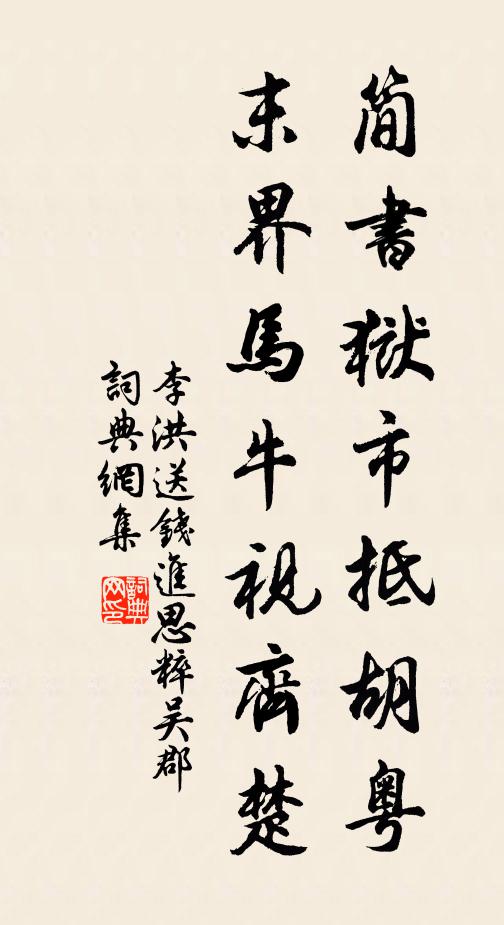 簡書獄市抵胡粵
末界馬牛視齊楚
李洪送錢進思粹吳郡
詞典網集
詞典网印